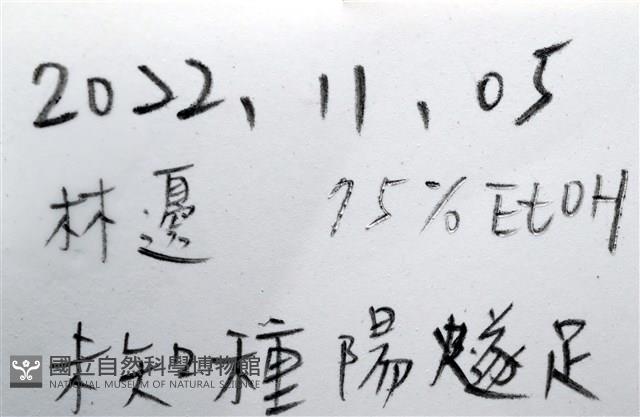 2022、11、05
林邊 75%EtOH
未知種陽燧足
國立自然科學博物館
NATIONAL MUSEUM OF NATURAL SCIENCE